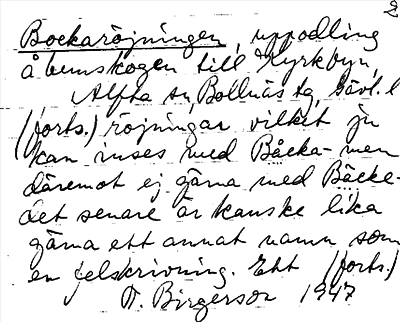 2
Bockaröjningen, uppodling
å hemskogen till Kyrkbyn,
Alfta sn, Bollnäs tg, Gävl. l
(forts.) röjningar vilket ju
kan inses med Båcka- men
däremot ej gärna med Bäcke-
det senare är kanske lika
gärna ett annat namn som
en felskrivning. Ett (forts.)
T. Birgerson 1947